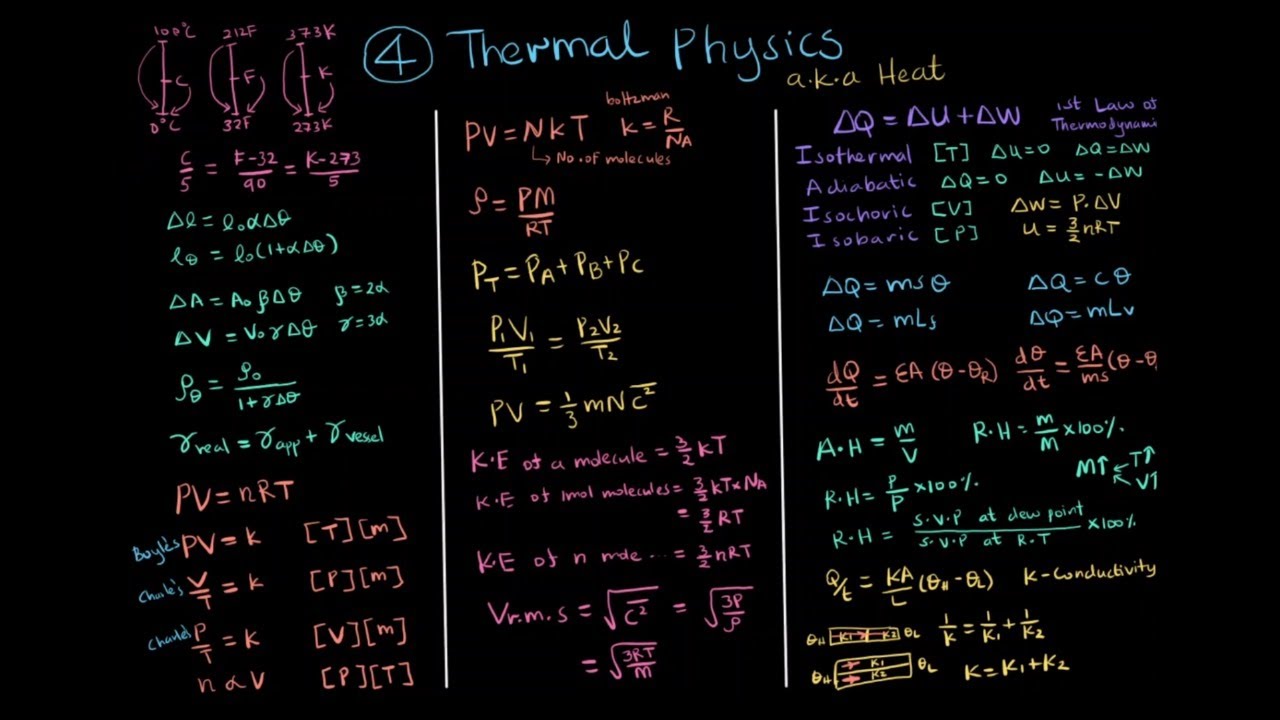 ④ Thermal Physics
a.k.a Heat
100°C 212F 373K
C F K
0°C 32F 273K
C/5 = F-32/90 = K-273/5
Δl = l₀αΔθ
lθ = l₀(1+αΔθ)
ΔA = A₀βΔθ β=2α
ΔV = V₀γΔθ γ=3α
ρθ = ρ₀/1+γΔθ
γreal = γapp + γvessel
PV = nRT
Boyle's PV = k [T][m]
Charle's V/T = k [P][m]
Charle's P/T = k [V][m]
n α V [P][T]
boltzman
PV = NkT k = R/NA
↳ No. of molecules
ρ = PM/RT
PT = PA + PB + PC
P₁V₁/T₁ = P₂V₂/T₂
PV = 1/3 mN c̅²
K.E of a molecule = 3/2 kT
K.E of 1mol molecules = 3/2 kT×NA
= 3/2 RT
K.E of n mole ... = 3/2 nRT
Vr.m.s = √c̅² = √3P/ρ
= √3RT/M
ΔQ = ΔU + ΔW 1st Law of
Thermodynami
Isothermal [T] ΔU=0 ΔQ=ΔW
Adiabatic ΔQ=0 ΔU=-ΔW
Isochoric [V] ΔW = P.ΔV
Isobaric [P] U = 3/2 nRT
ΔQ = msθ ΔQ = cθ
ΔQ = mLs ΔQ = mLv
dQ/dt = εA(θ-θR) dθ/dt = εA/ms (θ-θ
A.H = m/V R.H = m/M ×100%
M↑ ← T↑
V↑
R.H = P/P ×100%
R.H = S.V.P at dew point/S.V.P at R.T ×100%
Q/t = KA/L (θH-θL) K-Conductivity
θH K₁ K₂ θL 1/K = 1/K₁ + 1/K₂
θH K₁ K₂ θL K = K₁+K₂